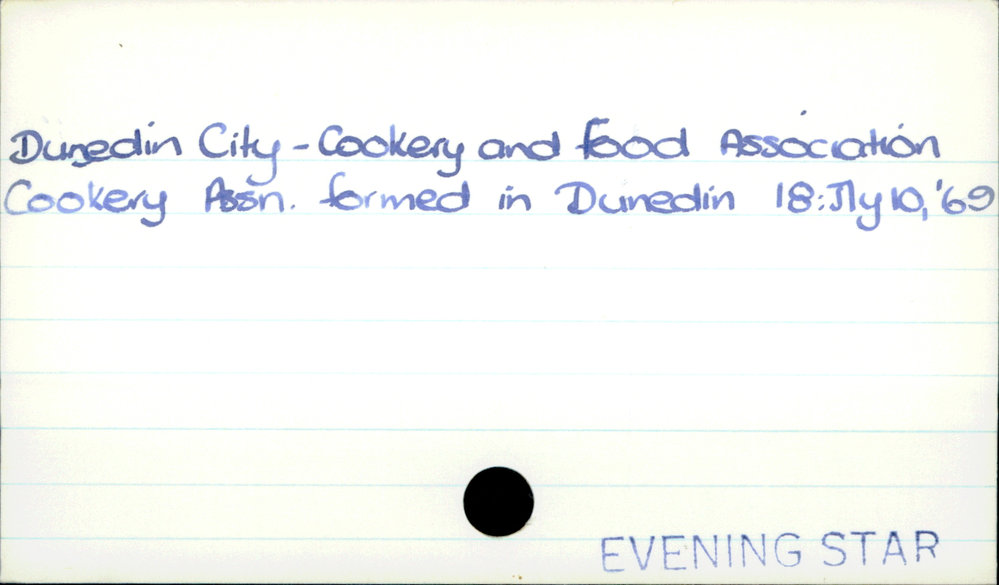 Dunedin City - Cookery and Food Association
Cookery Assn. formed in Dunedin 18: Jly 10, '69
EVENING STAR